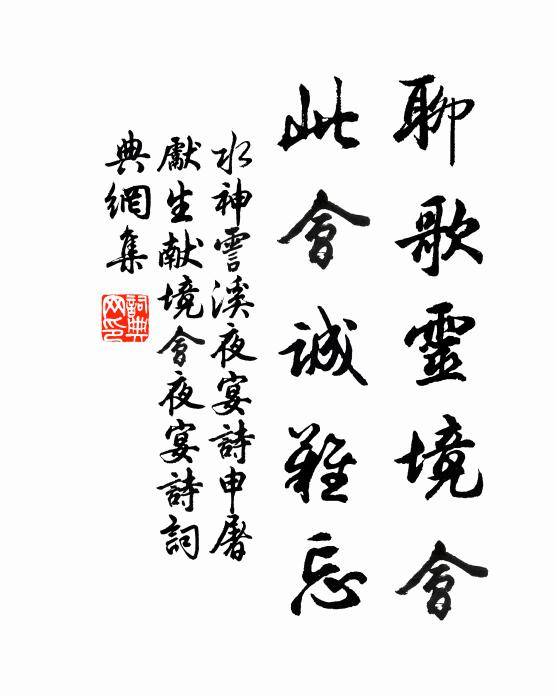 聊歌靈境會
此會誠難忘
水神霅溪夜宴詩申屠
獻生献境會夜宴詩詞
典網集
詞典网印